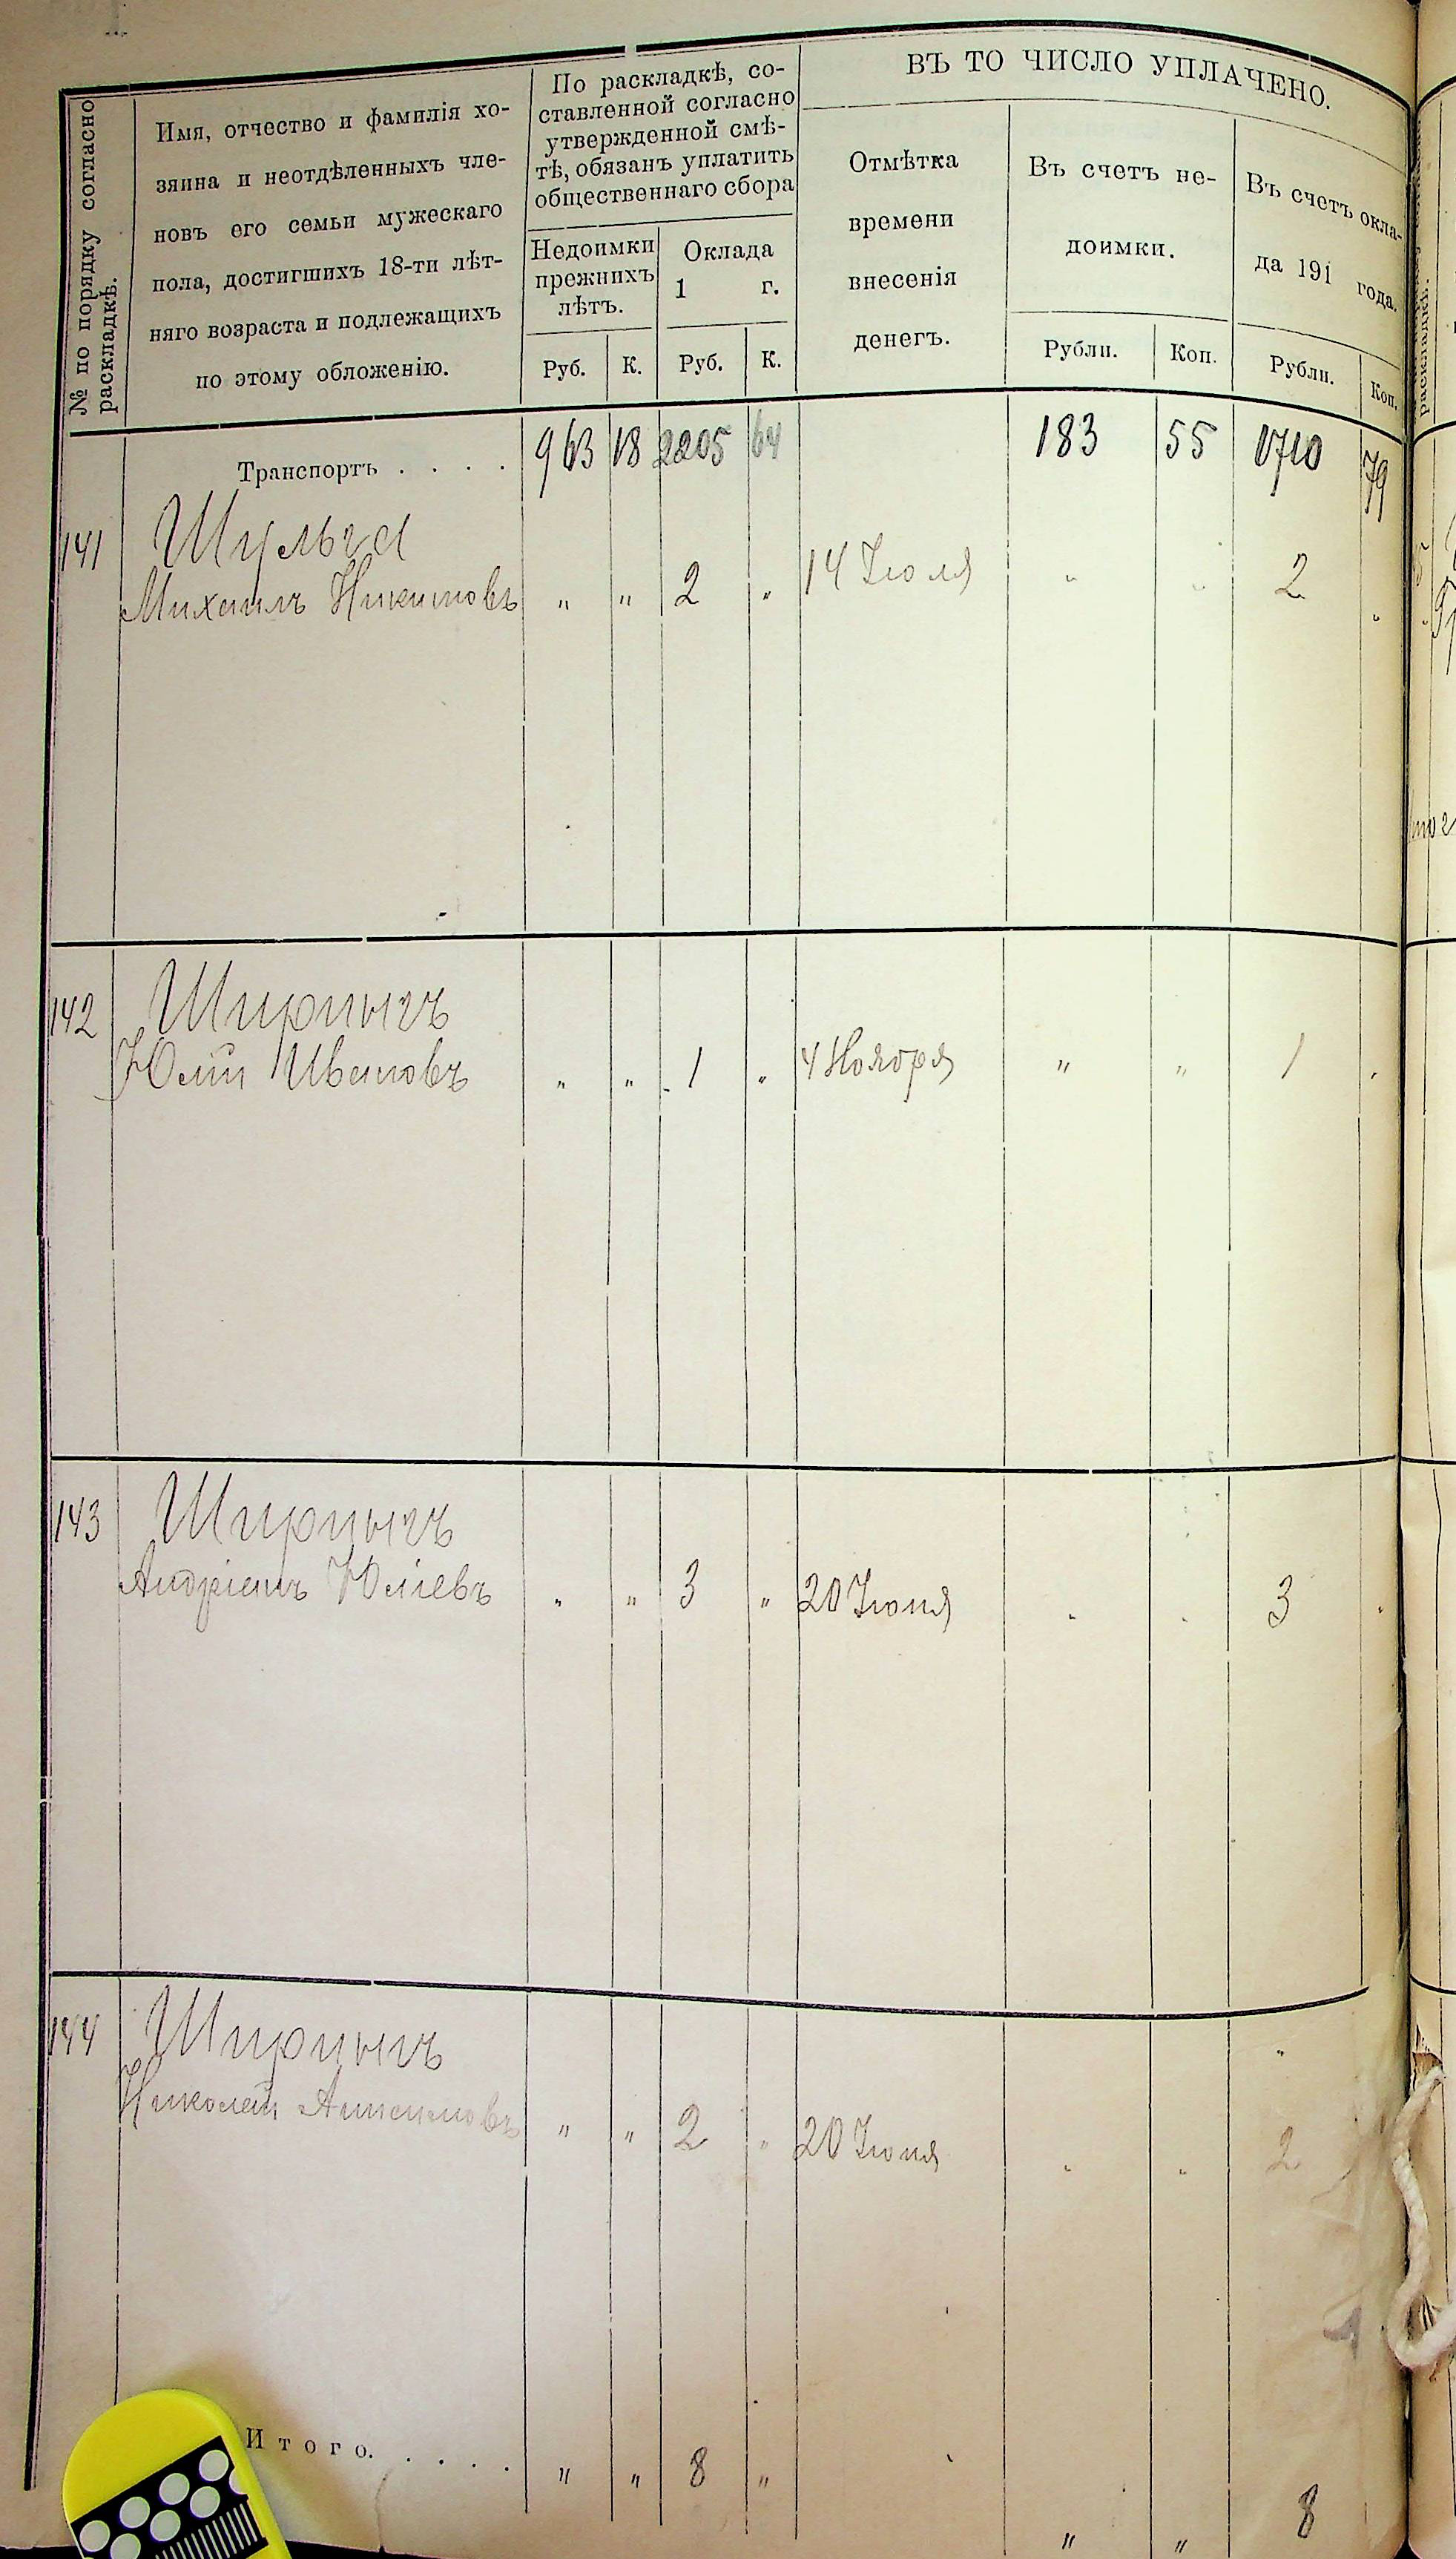 № по порядку согласно
раскладкѣ.
Имя, отчество и фамилія хо-
зяина и неотдѣленныхъ чле-
новъ его семьи мужескаго
пола, достигшихъ 18-ти лѣт-
няго возраста и подлежащихъ
по этому обложенію.
По раскладкѣ, со-
ставленной согласно
утвержденной смѣ-
тѣ, обязанъ уплатить
общественнаго сбора
Недоимки
прежнихъ
лѣтъ.
Руб. К.
Оклада
1 г.
Руб. К.
ВЪ ТО ЧИСЛО УПЛАЧЕНО.
Отмѣтка
времени
внесенія
денегъ.
Въ счетъ не-
доимки.
Рубли. Коп.
Въ счетъ окла-
да 191 года.
Рубли. Коп.
Транспортъ . . . . 963 18 2205 64 183 55 1710 79
141 Шульга
Михаилъ Никитовъ " " 2 " 14 Іюля " " 2 "
142 Ширпычъ
Юлій Ивановъ " " 1 " 4 Ноября " " 1 "
143 Ширпычъ
Андріанъ Юліевъ " " 3 " 20 Іюня " " 3 "
144 Ширпычъ
Николай " " 2 " 20 Іюня " " 2 "
Итого. . . . . " " 8 " " " 8